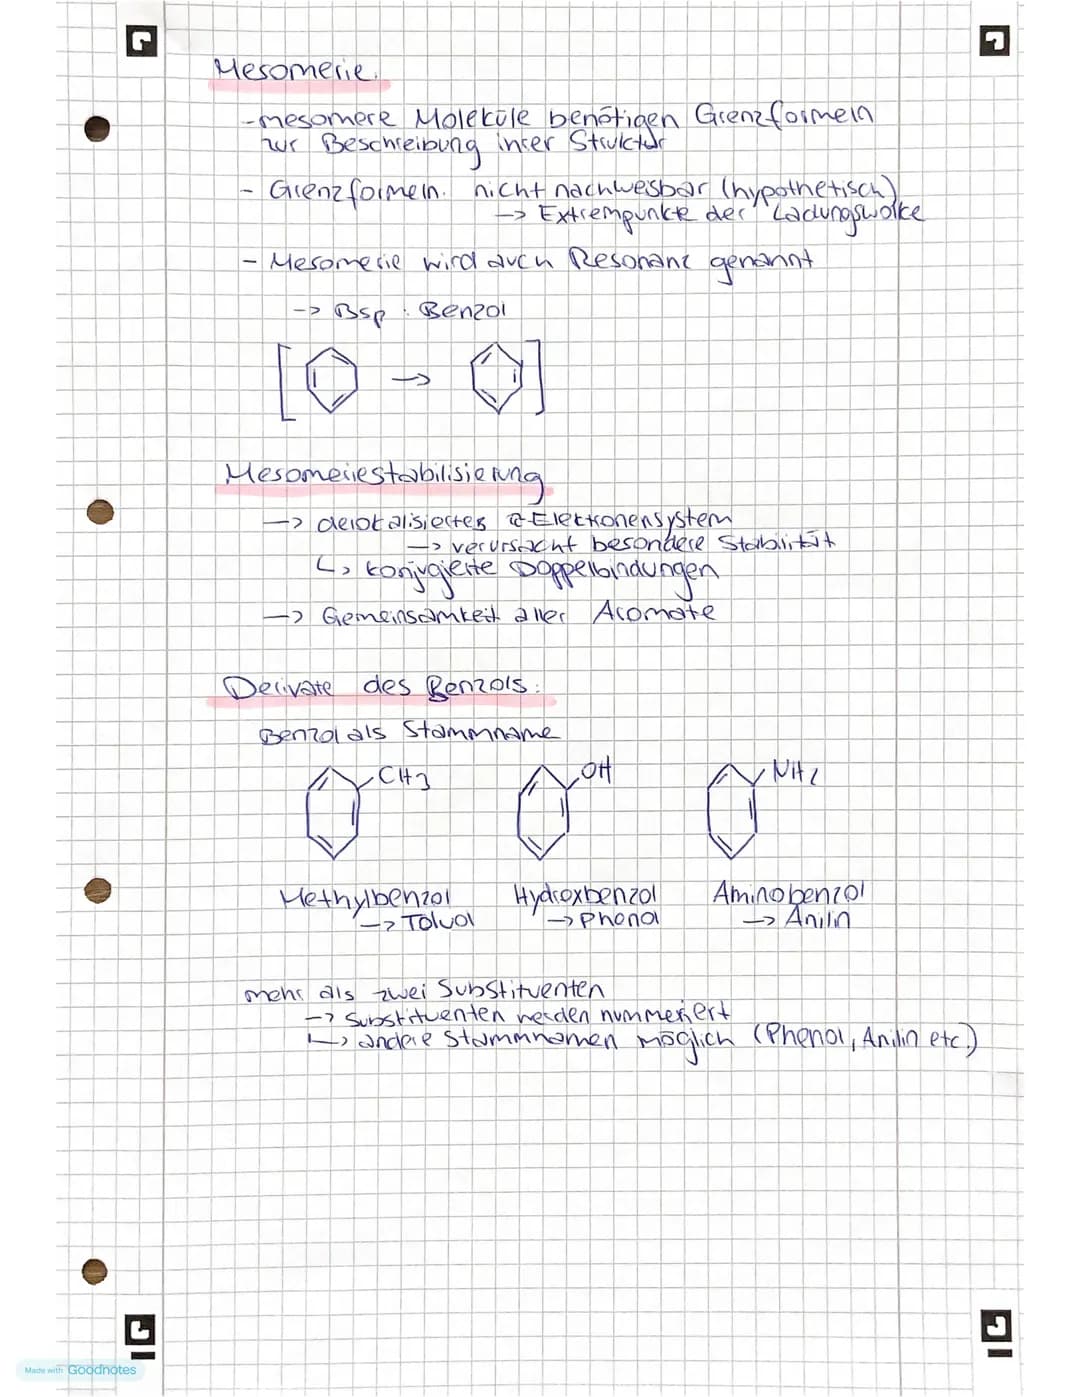 Mesomerie.
-mesomere Moleküle benötigen Grenzformeln
zur Beschreibung ihrer Struktur
- Grenzformeln: nicht nachweisbar (hypothetisch)
-> Extrempunkte der Ladungswolke
- Mesomerie wird auch Resonanz genannt
-> Bsp: Benzol
Mesomeriestabilisierung
-> delokalisiertes Elektronensystem
-> verursacht besondere Stabilität
↳ konjugierte Doppelbindungen
-> Gemeinsamkeit aller Aromate
Derivate des Benzols:
Benzol als Stammname
CH3 OH NH2
Methylbenzol Hydroxbenzol Aminobenzol
-> Toluol -> Phenol -> Anilin
mehr als zwei Substituenten
-> Substituenten werden nummeriert
↳ andere Stammnamen möglich (Phenol, Anilin etc.)
Made with Goodnotes